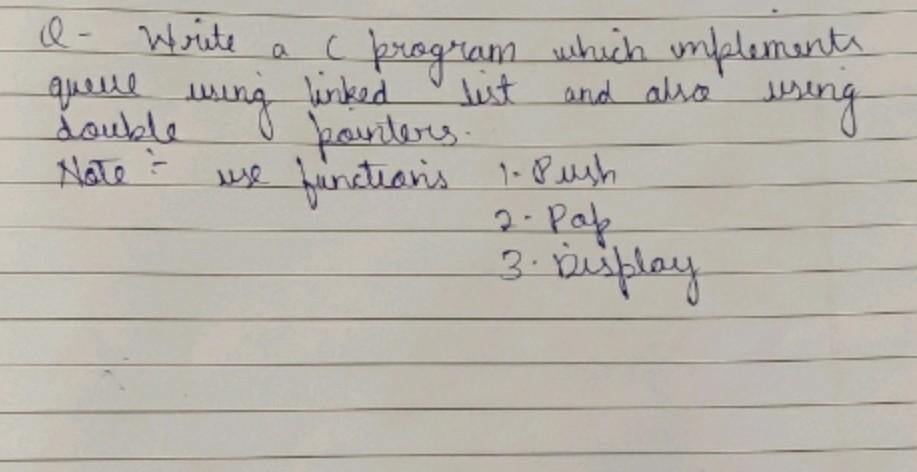 Q- Write a C program which implements
queue using linked list and also using
double pointers.
Note :- use functions 1. Push
2. Pop
3. Display